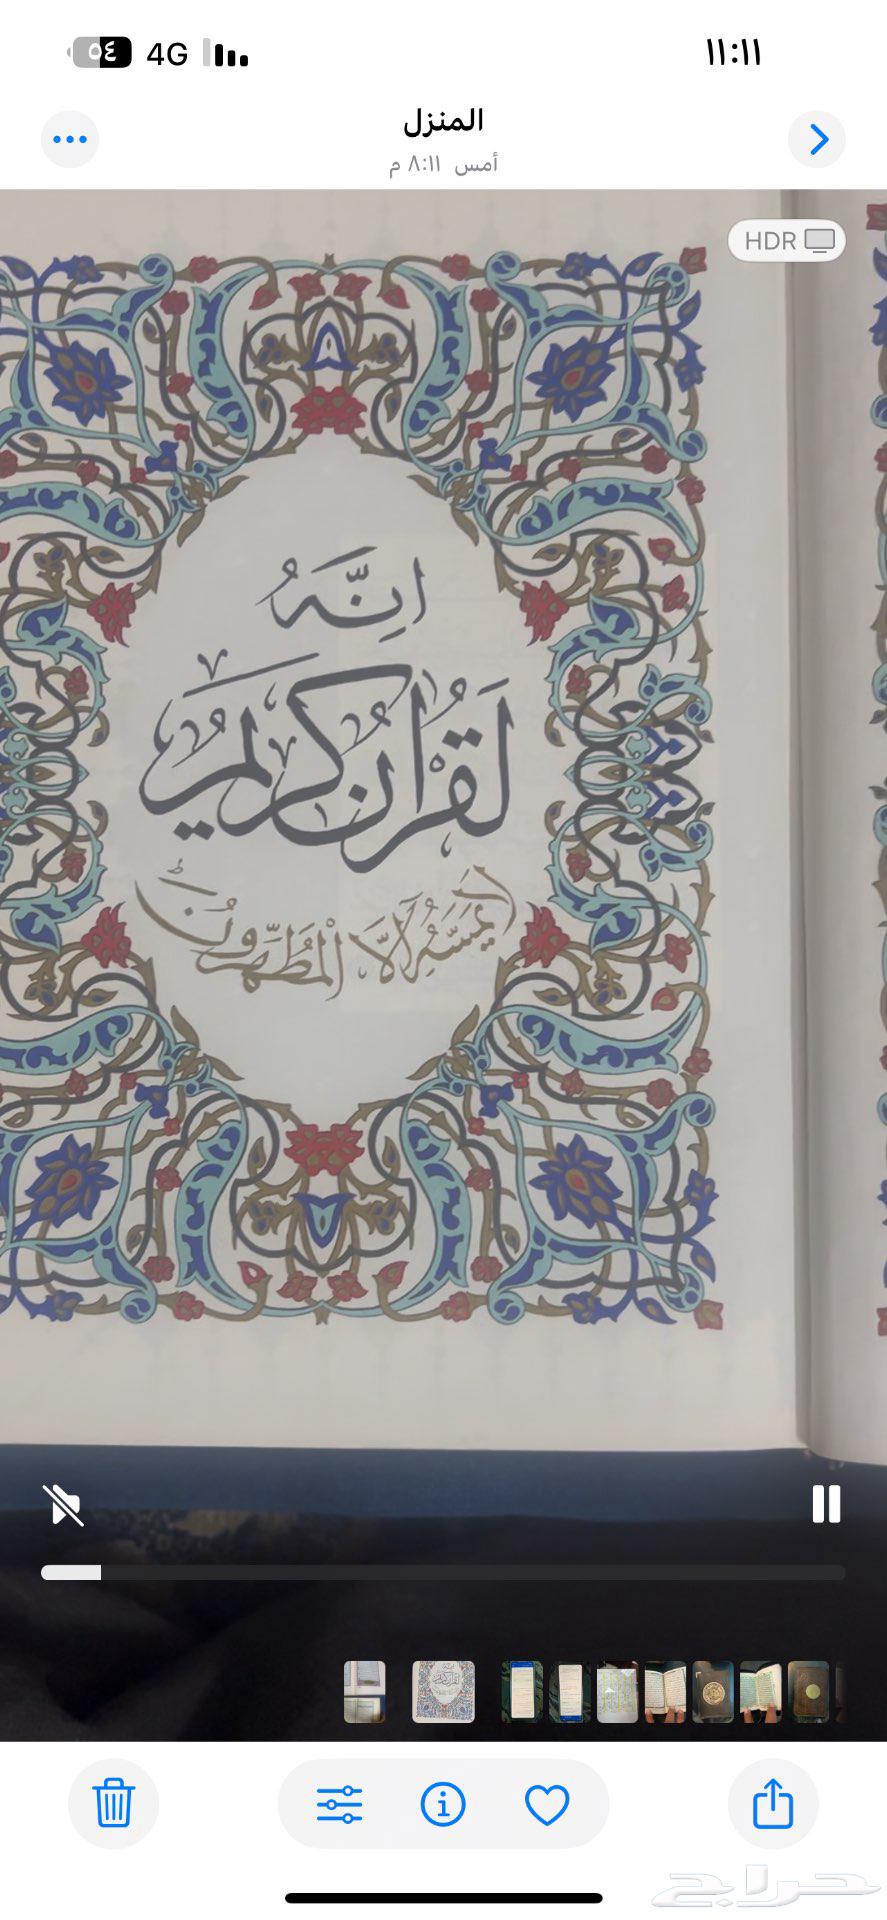 ١١:١١
4G
٥٤
المنزل
أمس ٨:١١ م
HDR
انه
لَقرانٌ كَريمٌ
لا يَمَسُّهُ إِلَّا الْمُطَهَّرُونَ
حراج